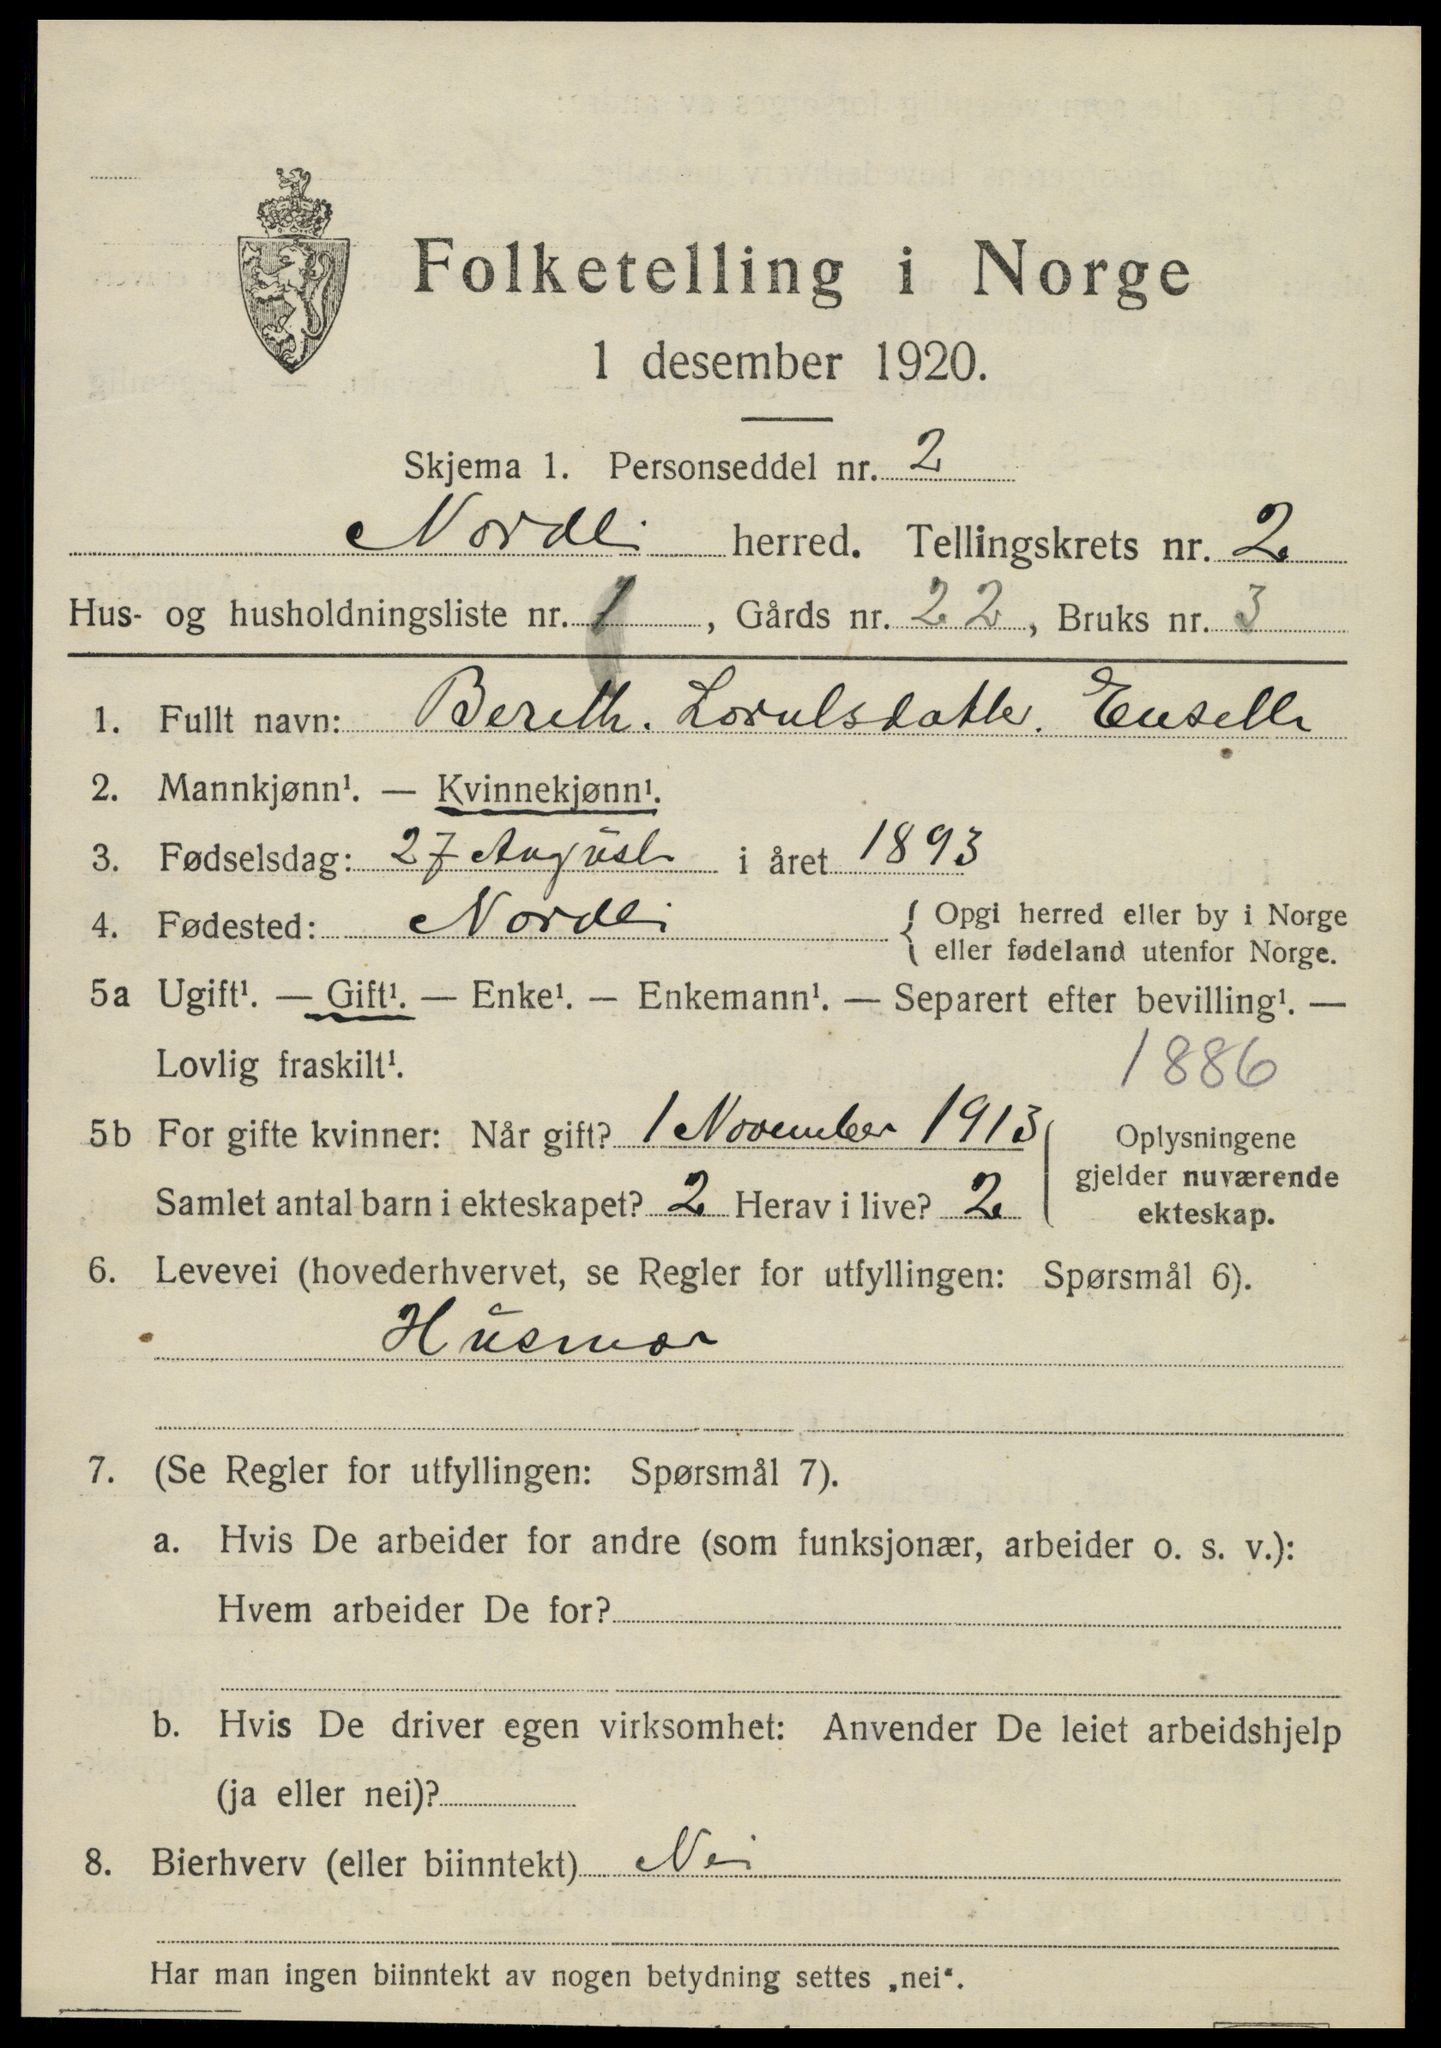 Folketelling i Norge
1 desember 1920.
Skjema 1. Personseddel nr. 2
Nordli herred. Tellingskrets nr. 2
Hus- og husholdningsliste nr. 1, Gårds nr. 22, Bruks nr. 3
1. Fullt navn: Bereth.
2. Mannkjønn¹. — Kvinnekjønn¹.
3. Fødselsdag: 27 August i året 1893
4. Fødested: Nordli { Opgi herred eller by i Norge
eller fødeland utenfor Norge.
5a Ugift¹. — Gift¹. — Enke¹. — Enkemann¹. — Separert efter bevilling¹. —
Lovlig fraskilt¹. 1886
5b For gifte kvinner: Når gift? 1 November 1913
Samlet antal barn i ekteskapet? 2 Herav i live? 2
Oplysningene
gjelder nuværende
ekteskap.
6. Levevei (hovederhvervet, se Regler for utfyllingen: Spørsmål 6).
Husmor
7. (Se Regler for utfyllingen: Spørsmål 7).
a. Hvis De arbeider for andre (som funksjonær, arbeider o. s. v.):
Hvem arbeider De for?
b. Hvis De driver egen virksomhet: Anvender De leiet arbeidshjelp
(ja eller nei)?
8. Bierhverv (eller biinntekt) Nei
Har man ingen biinntekt av nogen betydning settes „nei“.